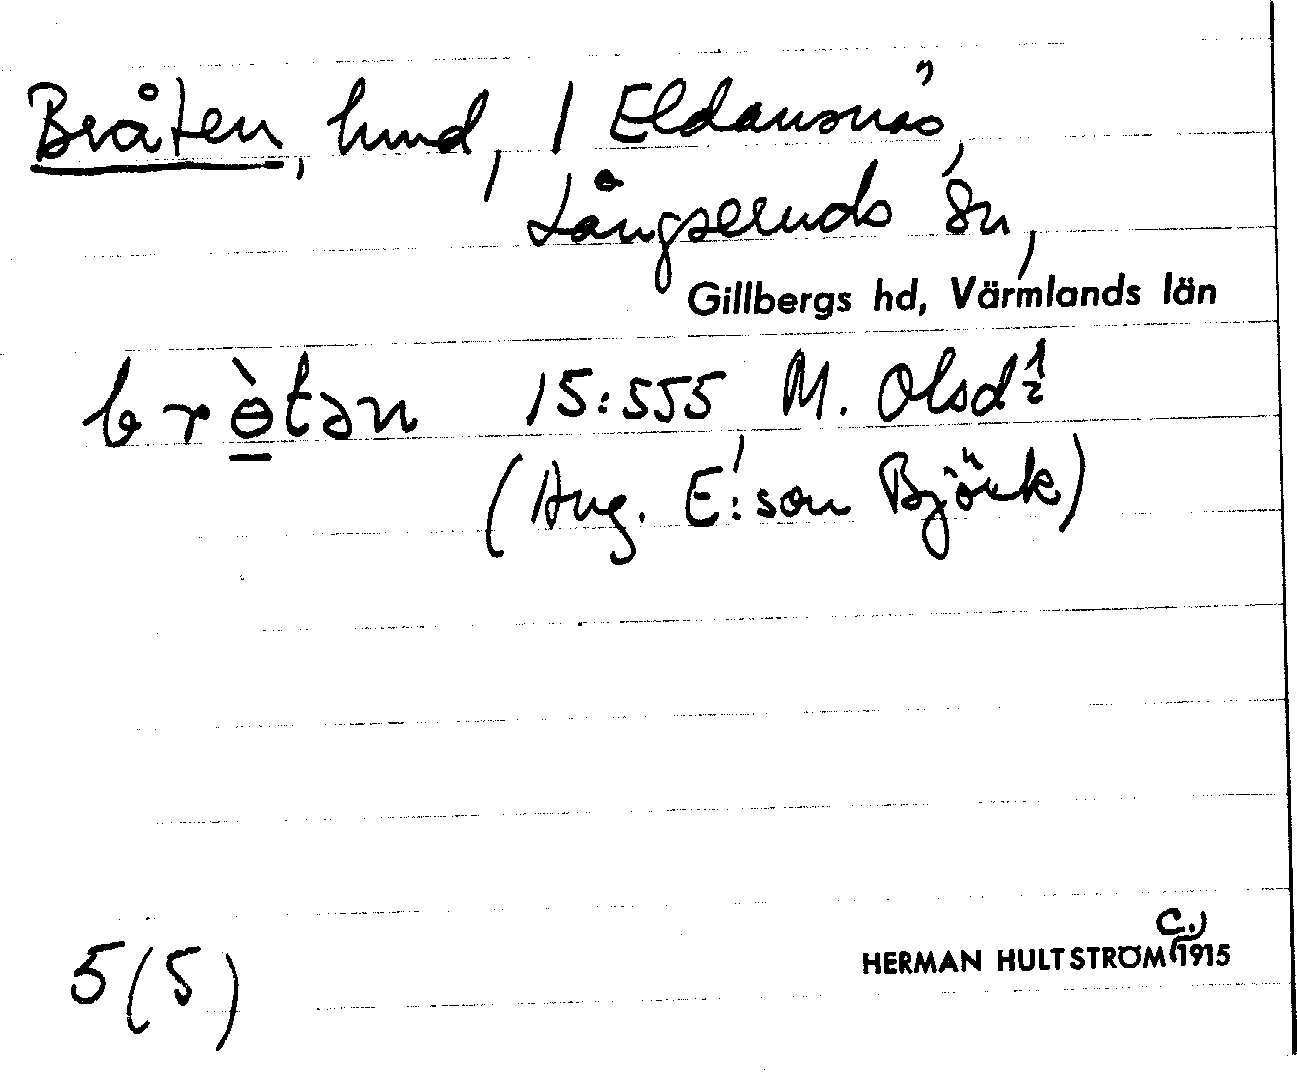 Bråten, hmd, 1 Eldansnäs,
Långseruds sn,
Gillbergs hd, Värmlands län
brɵ̀tən 15:555 M. Olsd ½
(Aug. E:son Björk)
5(5)
HERMAN HULTSTRÖM (C.) 1915